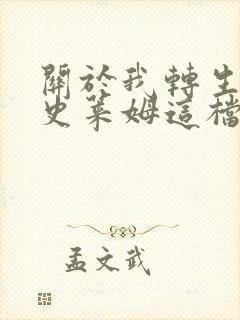 關於我轉生
史萊姆這檔
孟文武